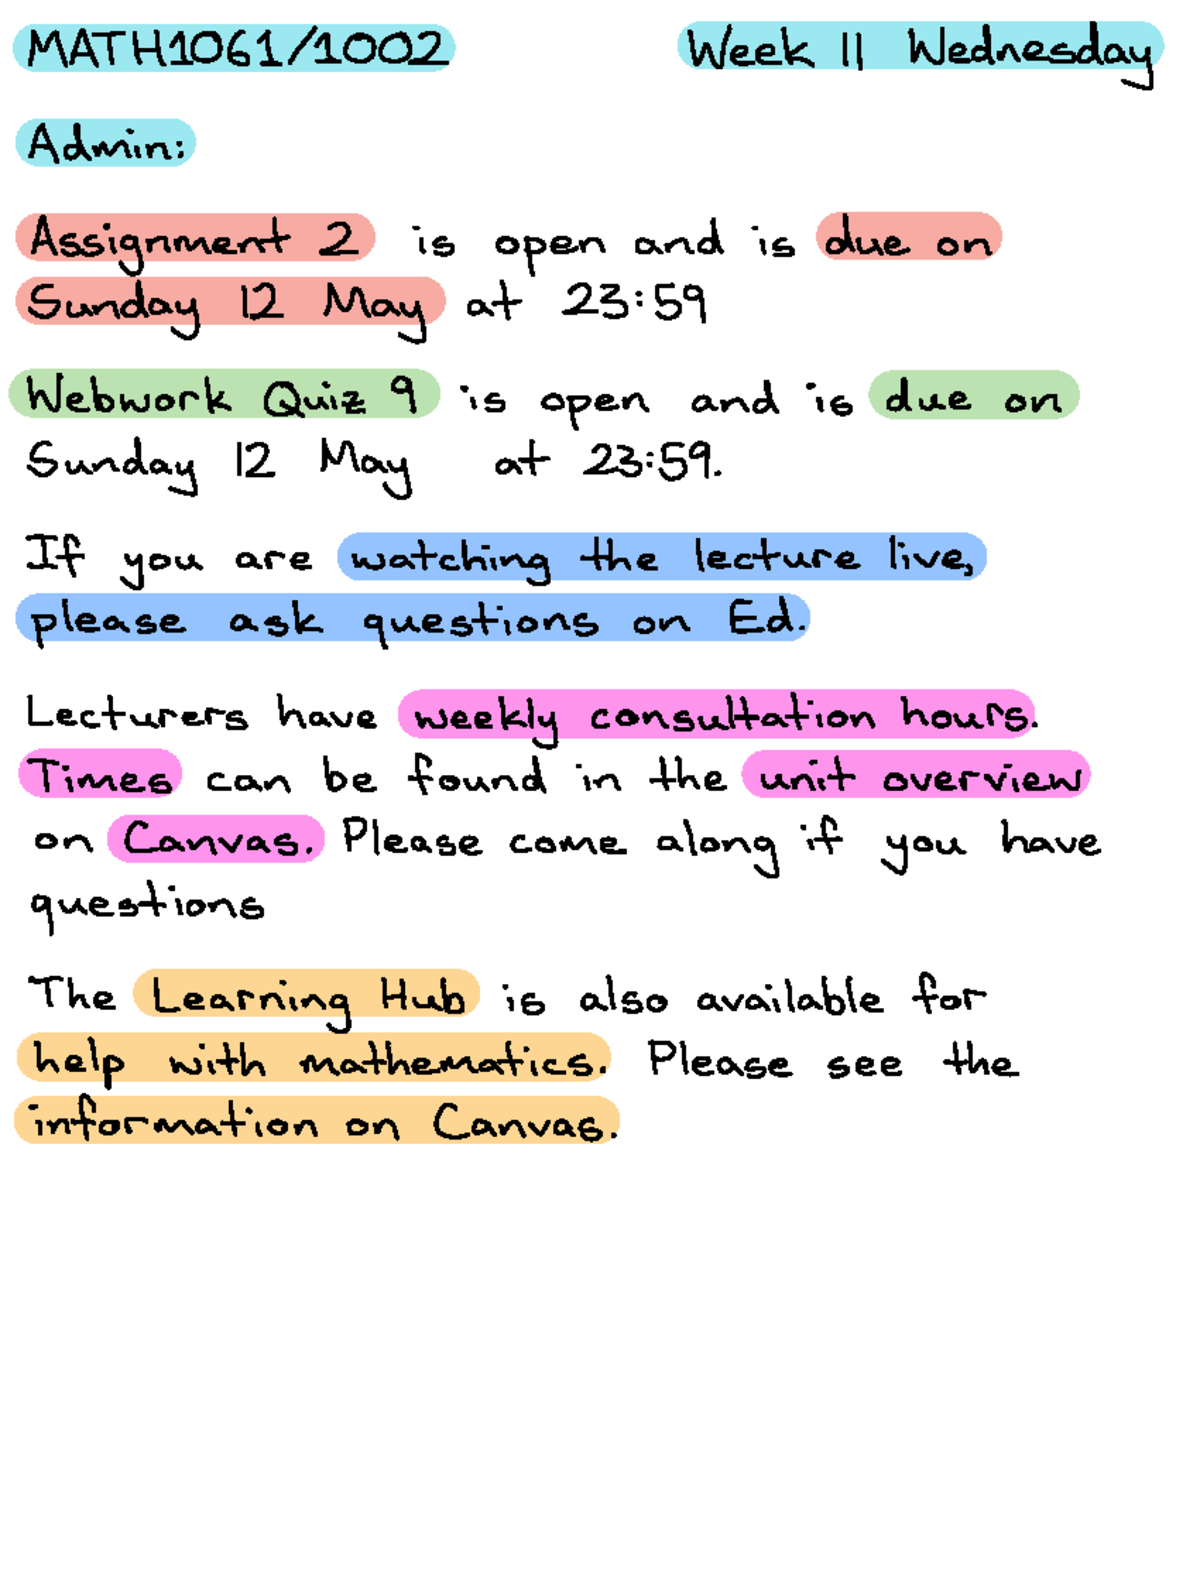 MATH1061/1002 Week 11 Wednesday
Admin:
Assignment 2 is open and is due on
Sunday 12 May at 23:59
Webwork Quiz 9 is open and is due on
Sunday 12 May at 23:59.
If you are watching the lecture live,
please ask questions on Ed.
Lecturers have weekly consultation hours.
Times can be found in the unit overview
on Canvas. Please come along if you have
questions
The Learning Hub is also available for
help with mathematics. Please see the
information on Canvas.